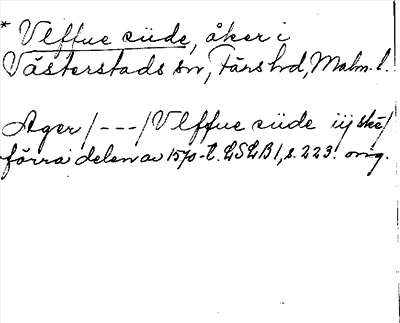 * Vlffue siide, åker i
Västerstads sn, Färs hd, Malm. l.
Ager /---/ Vlffue siide iij ske/
förra delen av 1570-t. LSLB 1, s. 223. orig.